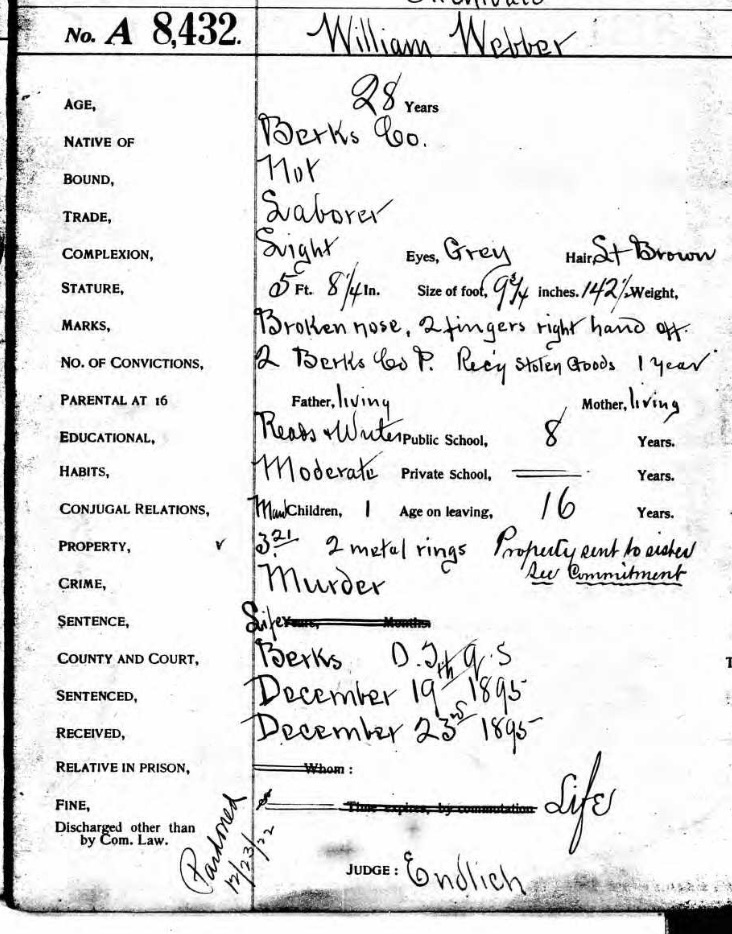 No. A 8,432. William Webber
AGE, 28 Years
NATIVE OF Berks Co.
BOUND, Not
TRADE, Laborer
COMPLEXION, Light Eyes, Grey Hair, Lt Brown
STATURE, 5 Ft. 8 1/4 In. Size of foot, 9 3/4 inches. 142 1/2 Weight,
MARKS, Broken nose, 2 fingers right hand off.
NO. OF CONVICTIONS, 2 Berks Co P. Rec'g Stolen Goods 1 year
PARENTAL AT 16 Father, living Mother, living
EDUCATIONAL, Reads & Writes Public School, 8 Years.
HABITS, Moderate Private School, Years.
CONJUGAL RELATIONS, Children, 1 Age on leaving, 16 Years.
PROPERTY, ✓ 3 21 2 metal rings Property sent to sister
See Commitment
CRIME, Murder
SENTENCE, Life Years, Months
COUNTY AND COURT, Berks O. T. & Q. S
SENTENCED, December 19th 1895
RECEIVED, December 23rd 1895
RELATIVE IN PRISON, Whom :
FINE, $ Time expires, by commutation Life
Discharged other than
by Com. Law.
Pardoned
12/23/22
JUDGE : Endlich